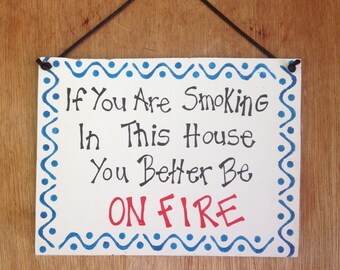 If You Are Smoking
In This House
You Better Be
ON FIRE